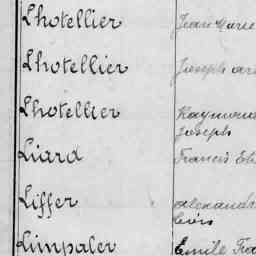 Lhotellier Jean Marie
Lhotellier Joseph
Lhotellier Raymond
Joseph
Liard Francis
Liffer Alexandr
Léon
Limpaler Emile